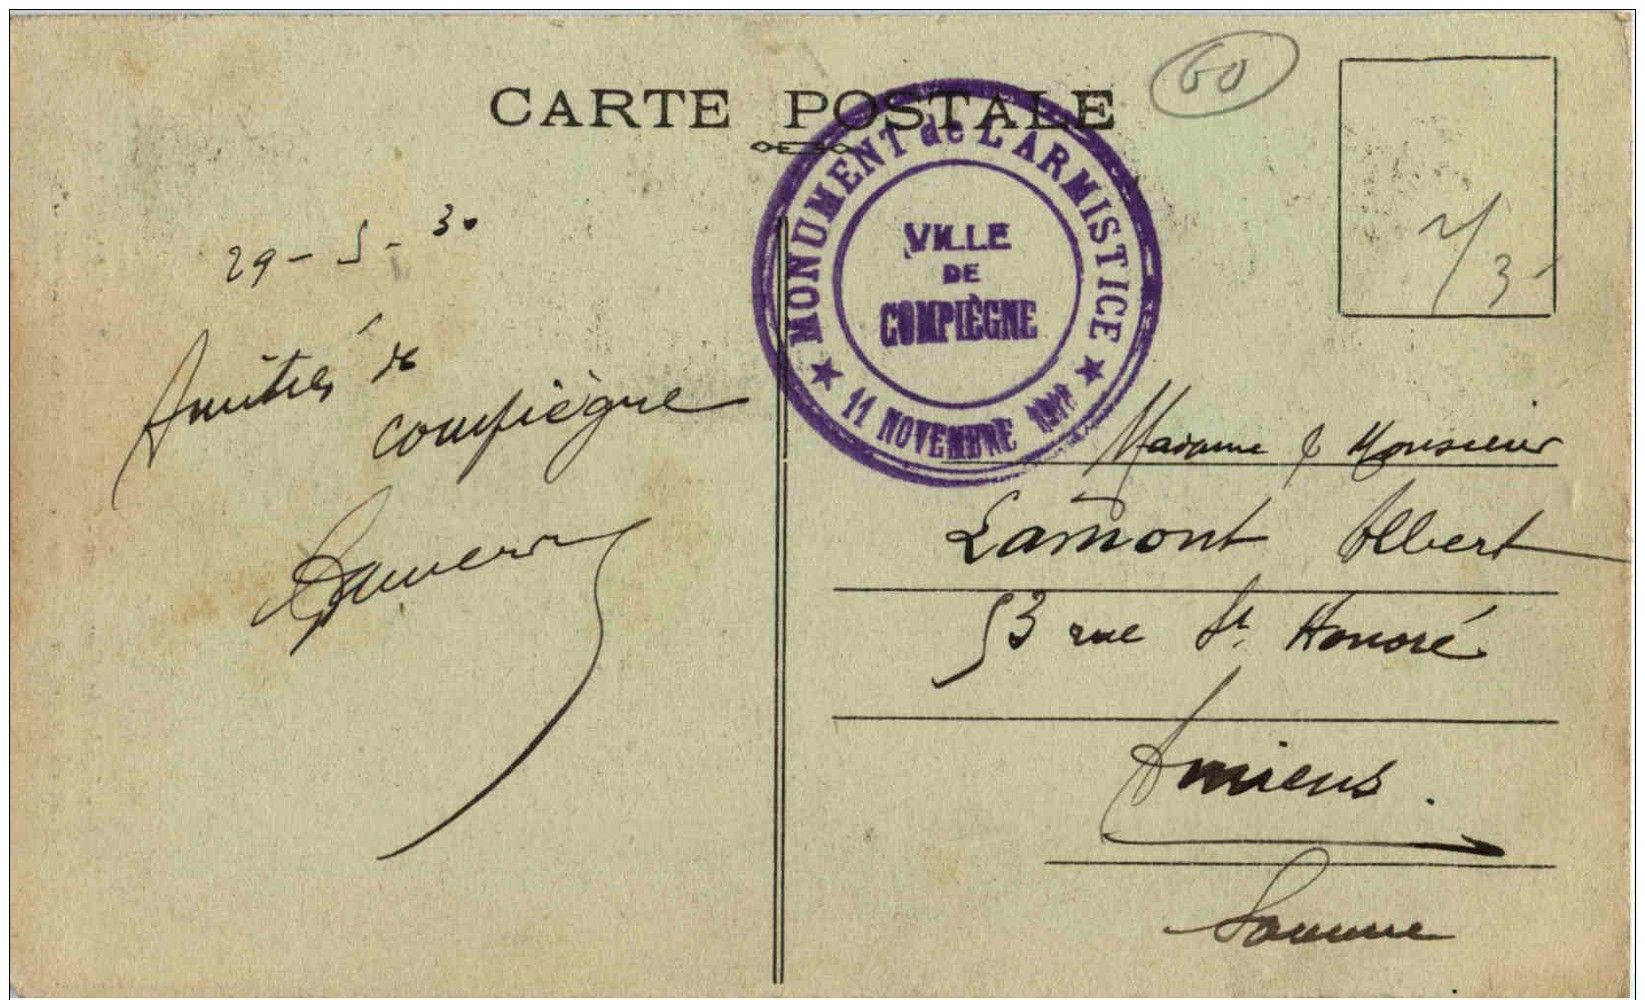 CARTE POSTALE
60
MONUMENT de L'ARMISTICE
VILLE
DE
COMPIÈGNE
★ 11 NOVEMBRE ★
29-5-30
Amitiés de
compiègne
Madame & Monsieur
Lamont Albert
53 rue St. Honoré
Amiens.
Somme